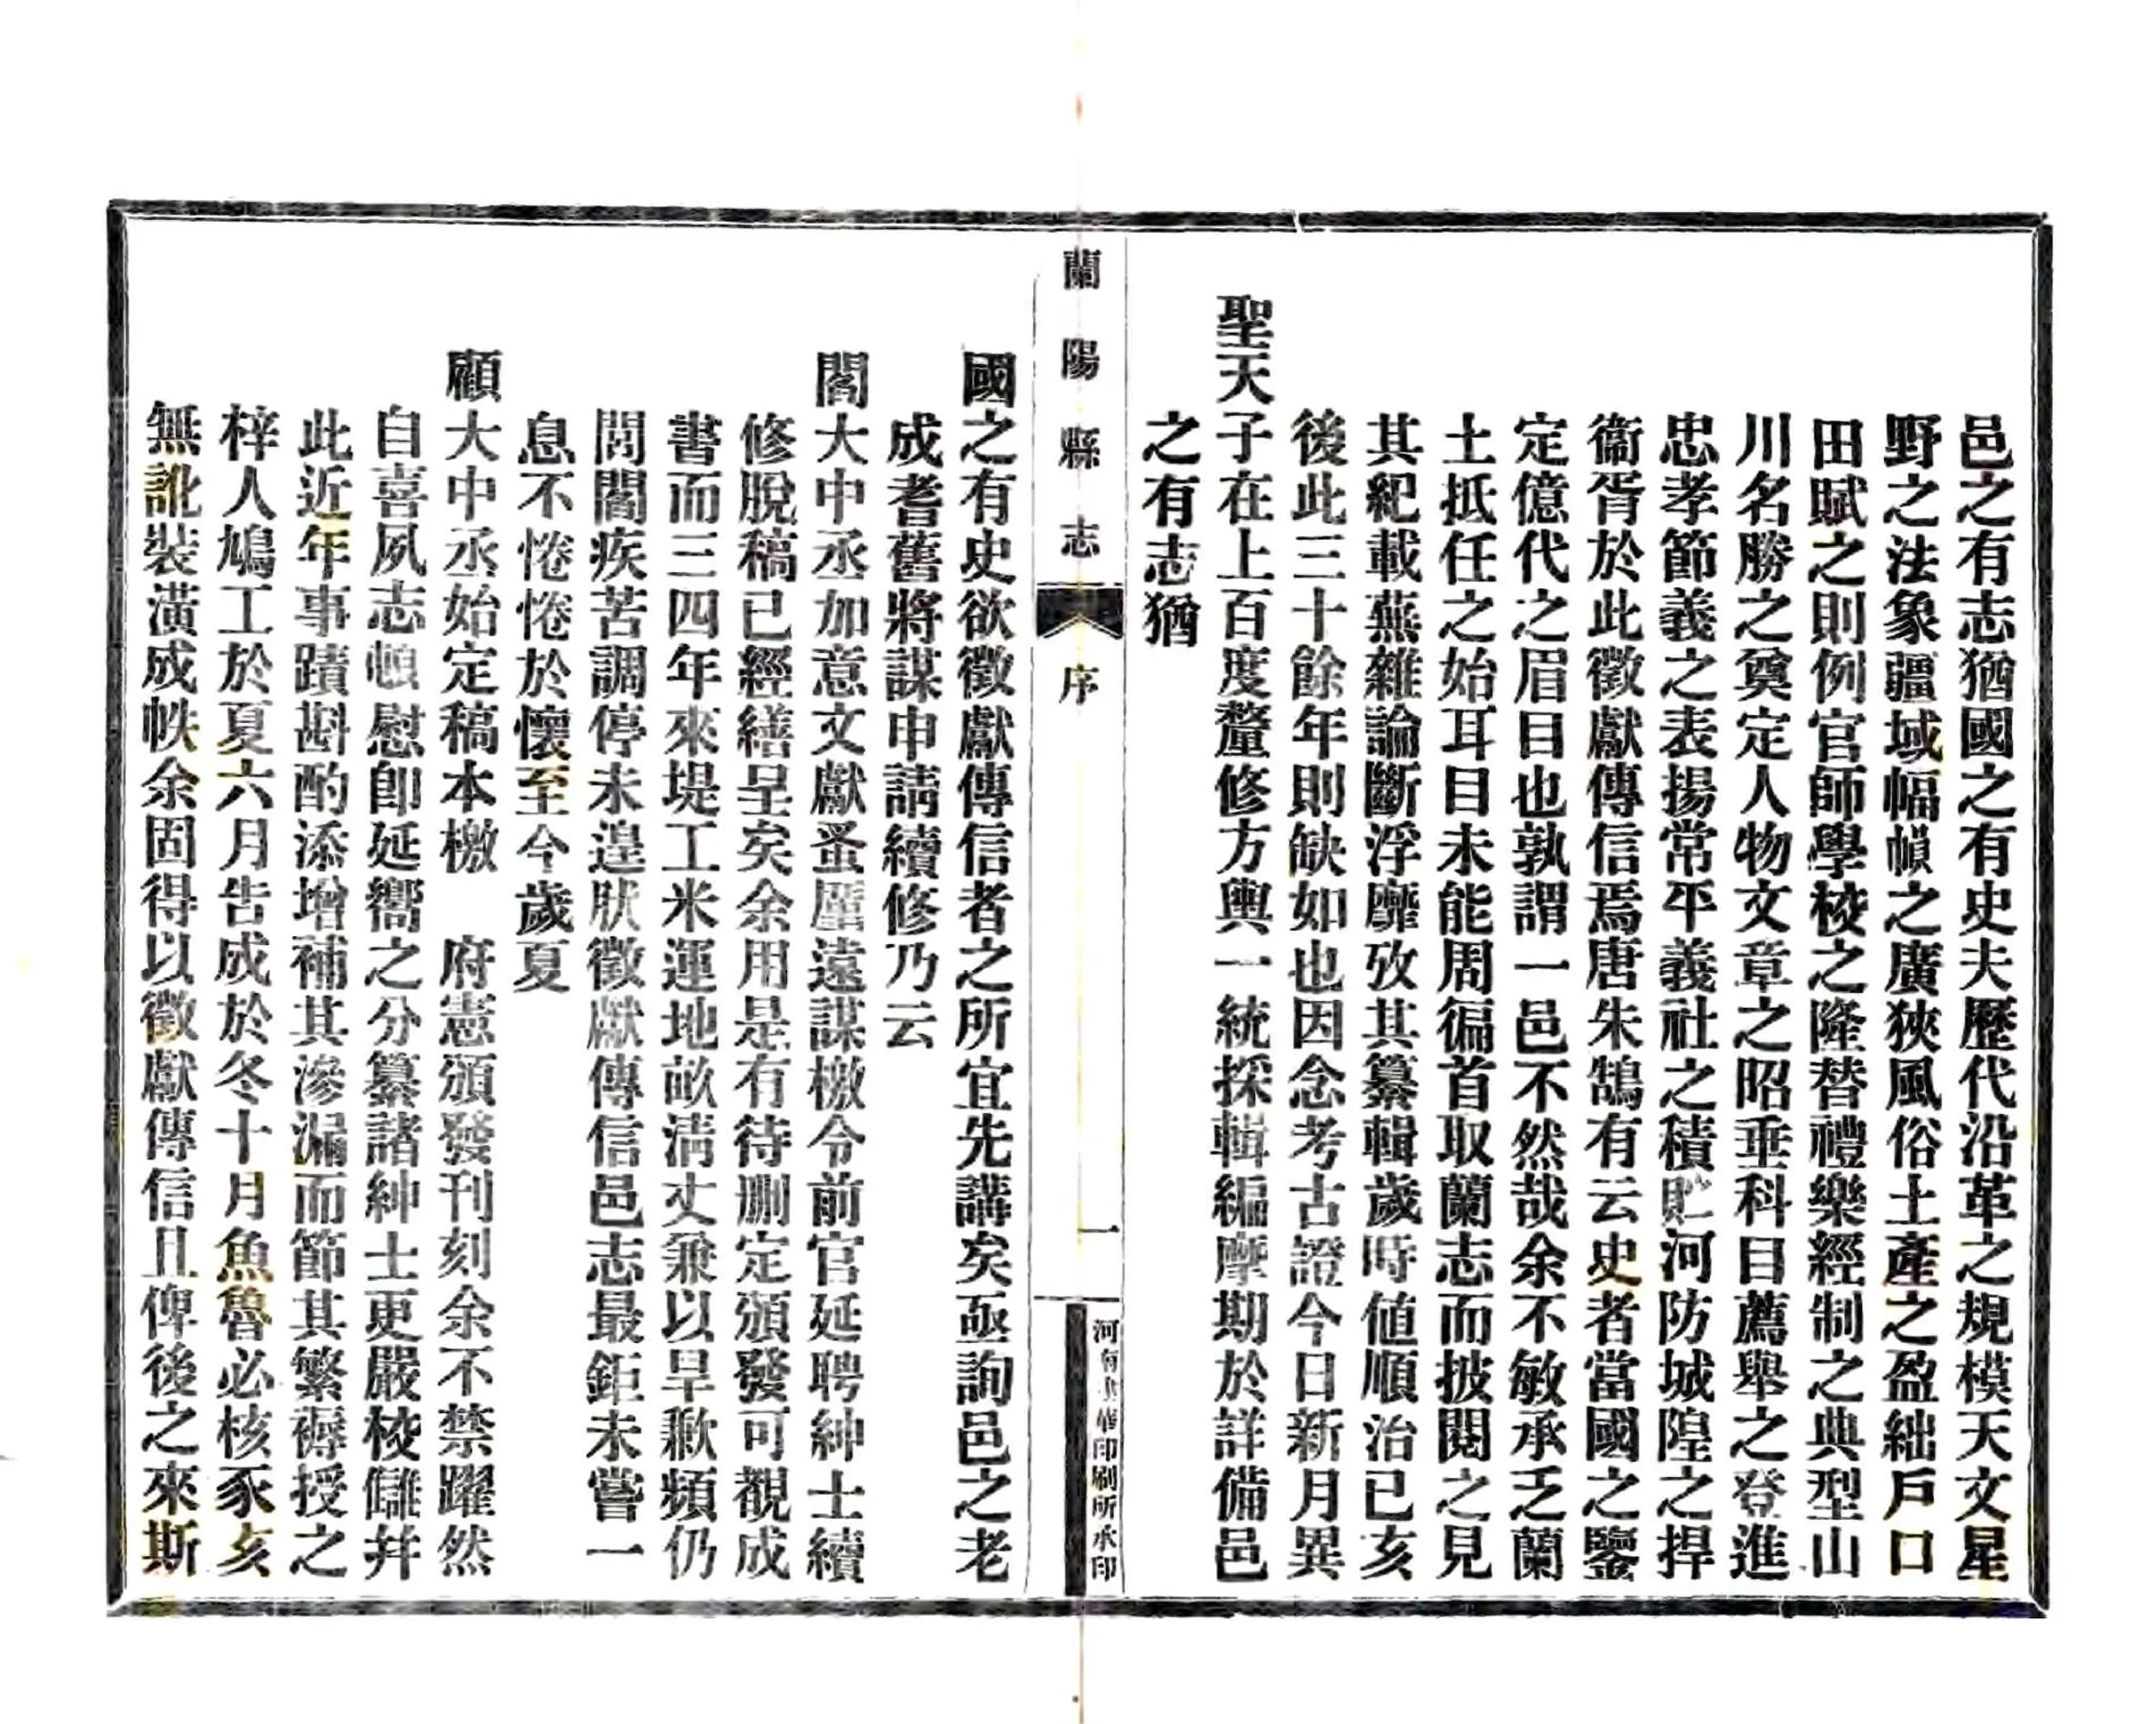 邑之有志猶國之有史夫歷代沿革之規模天文星
野之法象疆域幅幀之廣狹風俗土產之盈絀戶口
田賦之則例官師學校之隆替禮樂經制之典型山
川名勝之奠定人物文章之昭垂科目薦舉之登進
忠孝節義之表揚常平義社之積貯河防城隍之捍
衞胥於此徵獻傳信焉唐朱鵠有云史者當國之鑒
定億代之眉目也孰謂一邑不然哉余不敏承乏蘭
土抵任之始耳目未能周徧首取蘭志而披閱之見
其紀載蕪雜論斷浮靡攷其纂輯歲時値順治已亥
後此三十餘年則缺如也因念考古證今日新月異
聖天子在上百度釐修方輿一統採輯編摩期於詳備邑
之有志猶
蘭陽縣志 序 一
印刷所承印
國之有史欲徵獻傳信者之所宜先講矣亟詢邑之老
成耆舊將謀申請續修乃云
閻大中丞加意文獻蚤厪遠謀檄令前官延聘紳士續
修脫稿已經繕呈矣余用是有待刪定頒發可覩成
書而三四年來堤工米運地畝淸丈兼以旱歉頻仍
閭閻疾苦調停未遑狀徵獻傳信邑志最鉅未嘗一
息不惓惓於懷至今歲夏
顧大中丞始定稿本檄 府憲頒發刊刻余不禁躍然
自喜夙志頓慰卽延嚮之分纂諸紳士更嚴校讎幷
此近年事蹟斟酌添增補其滲漏而節其繁褥授之
梓人鳩工於夏六月告成於冬十月魚魯必核豕亥
無訛裝潢成帙余固得以徵獻傳信且俾後之來斯